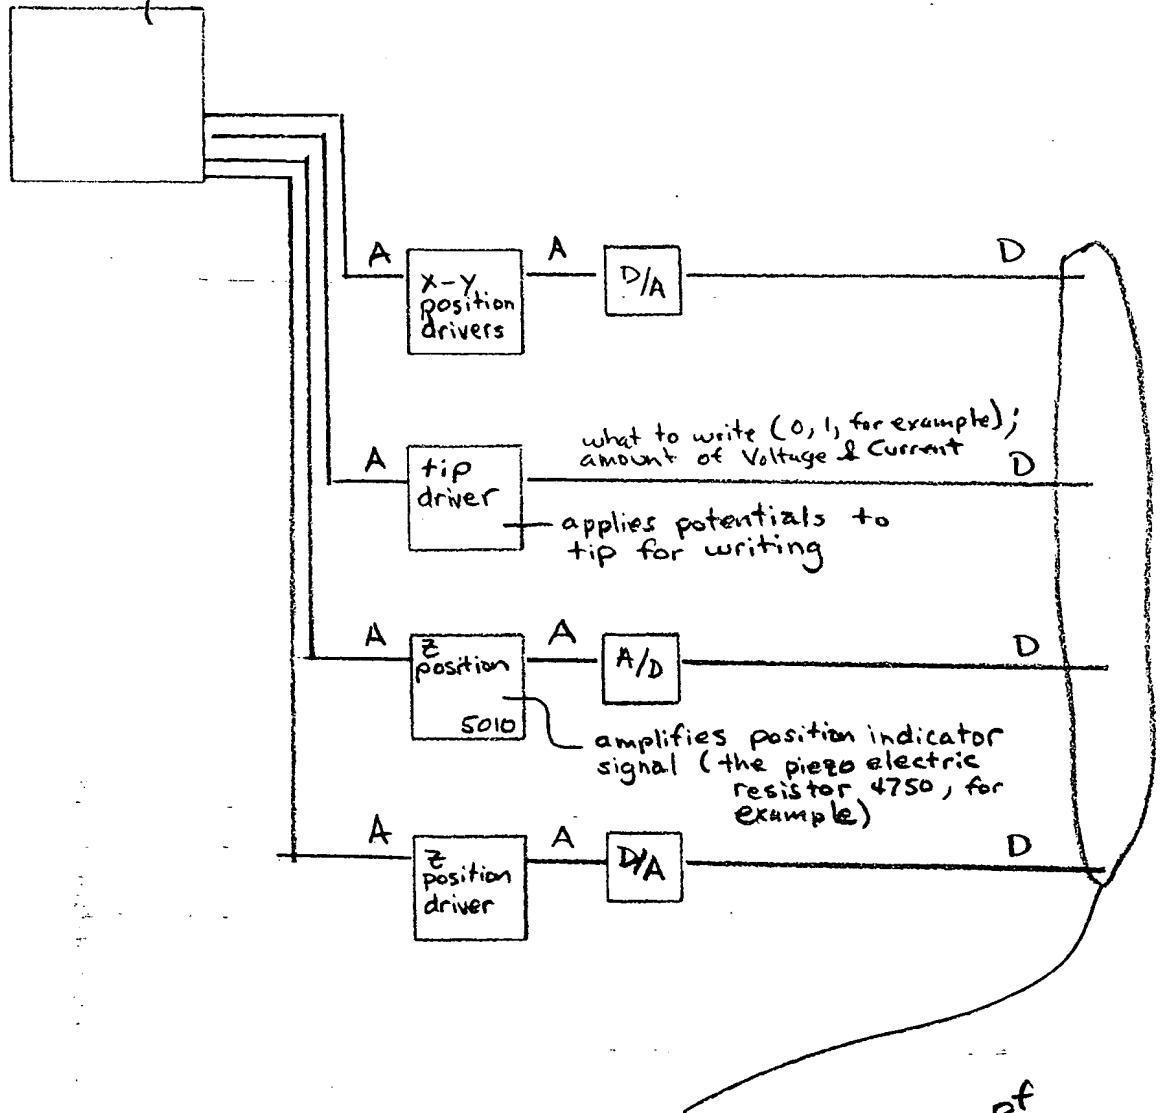 A
X-Y
position
drivers
A
D/A
D
A
tip
driver
what to write (0, 1, for example);
amount of Voltage & Current
D
applies potentials to
tip for writing
A
z
position
5010
A
A/D
D
amplifies position indicator
signal (the piezo electric
resistor 4750, for
example)
A
z
position
driver
A
D/A
D
of